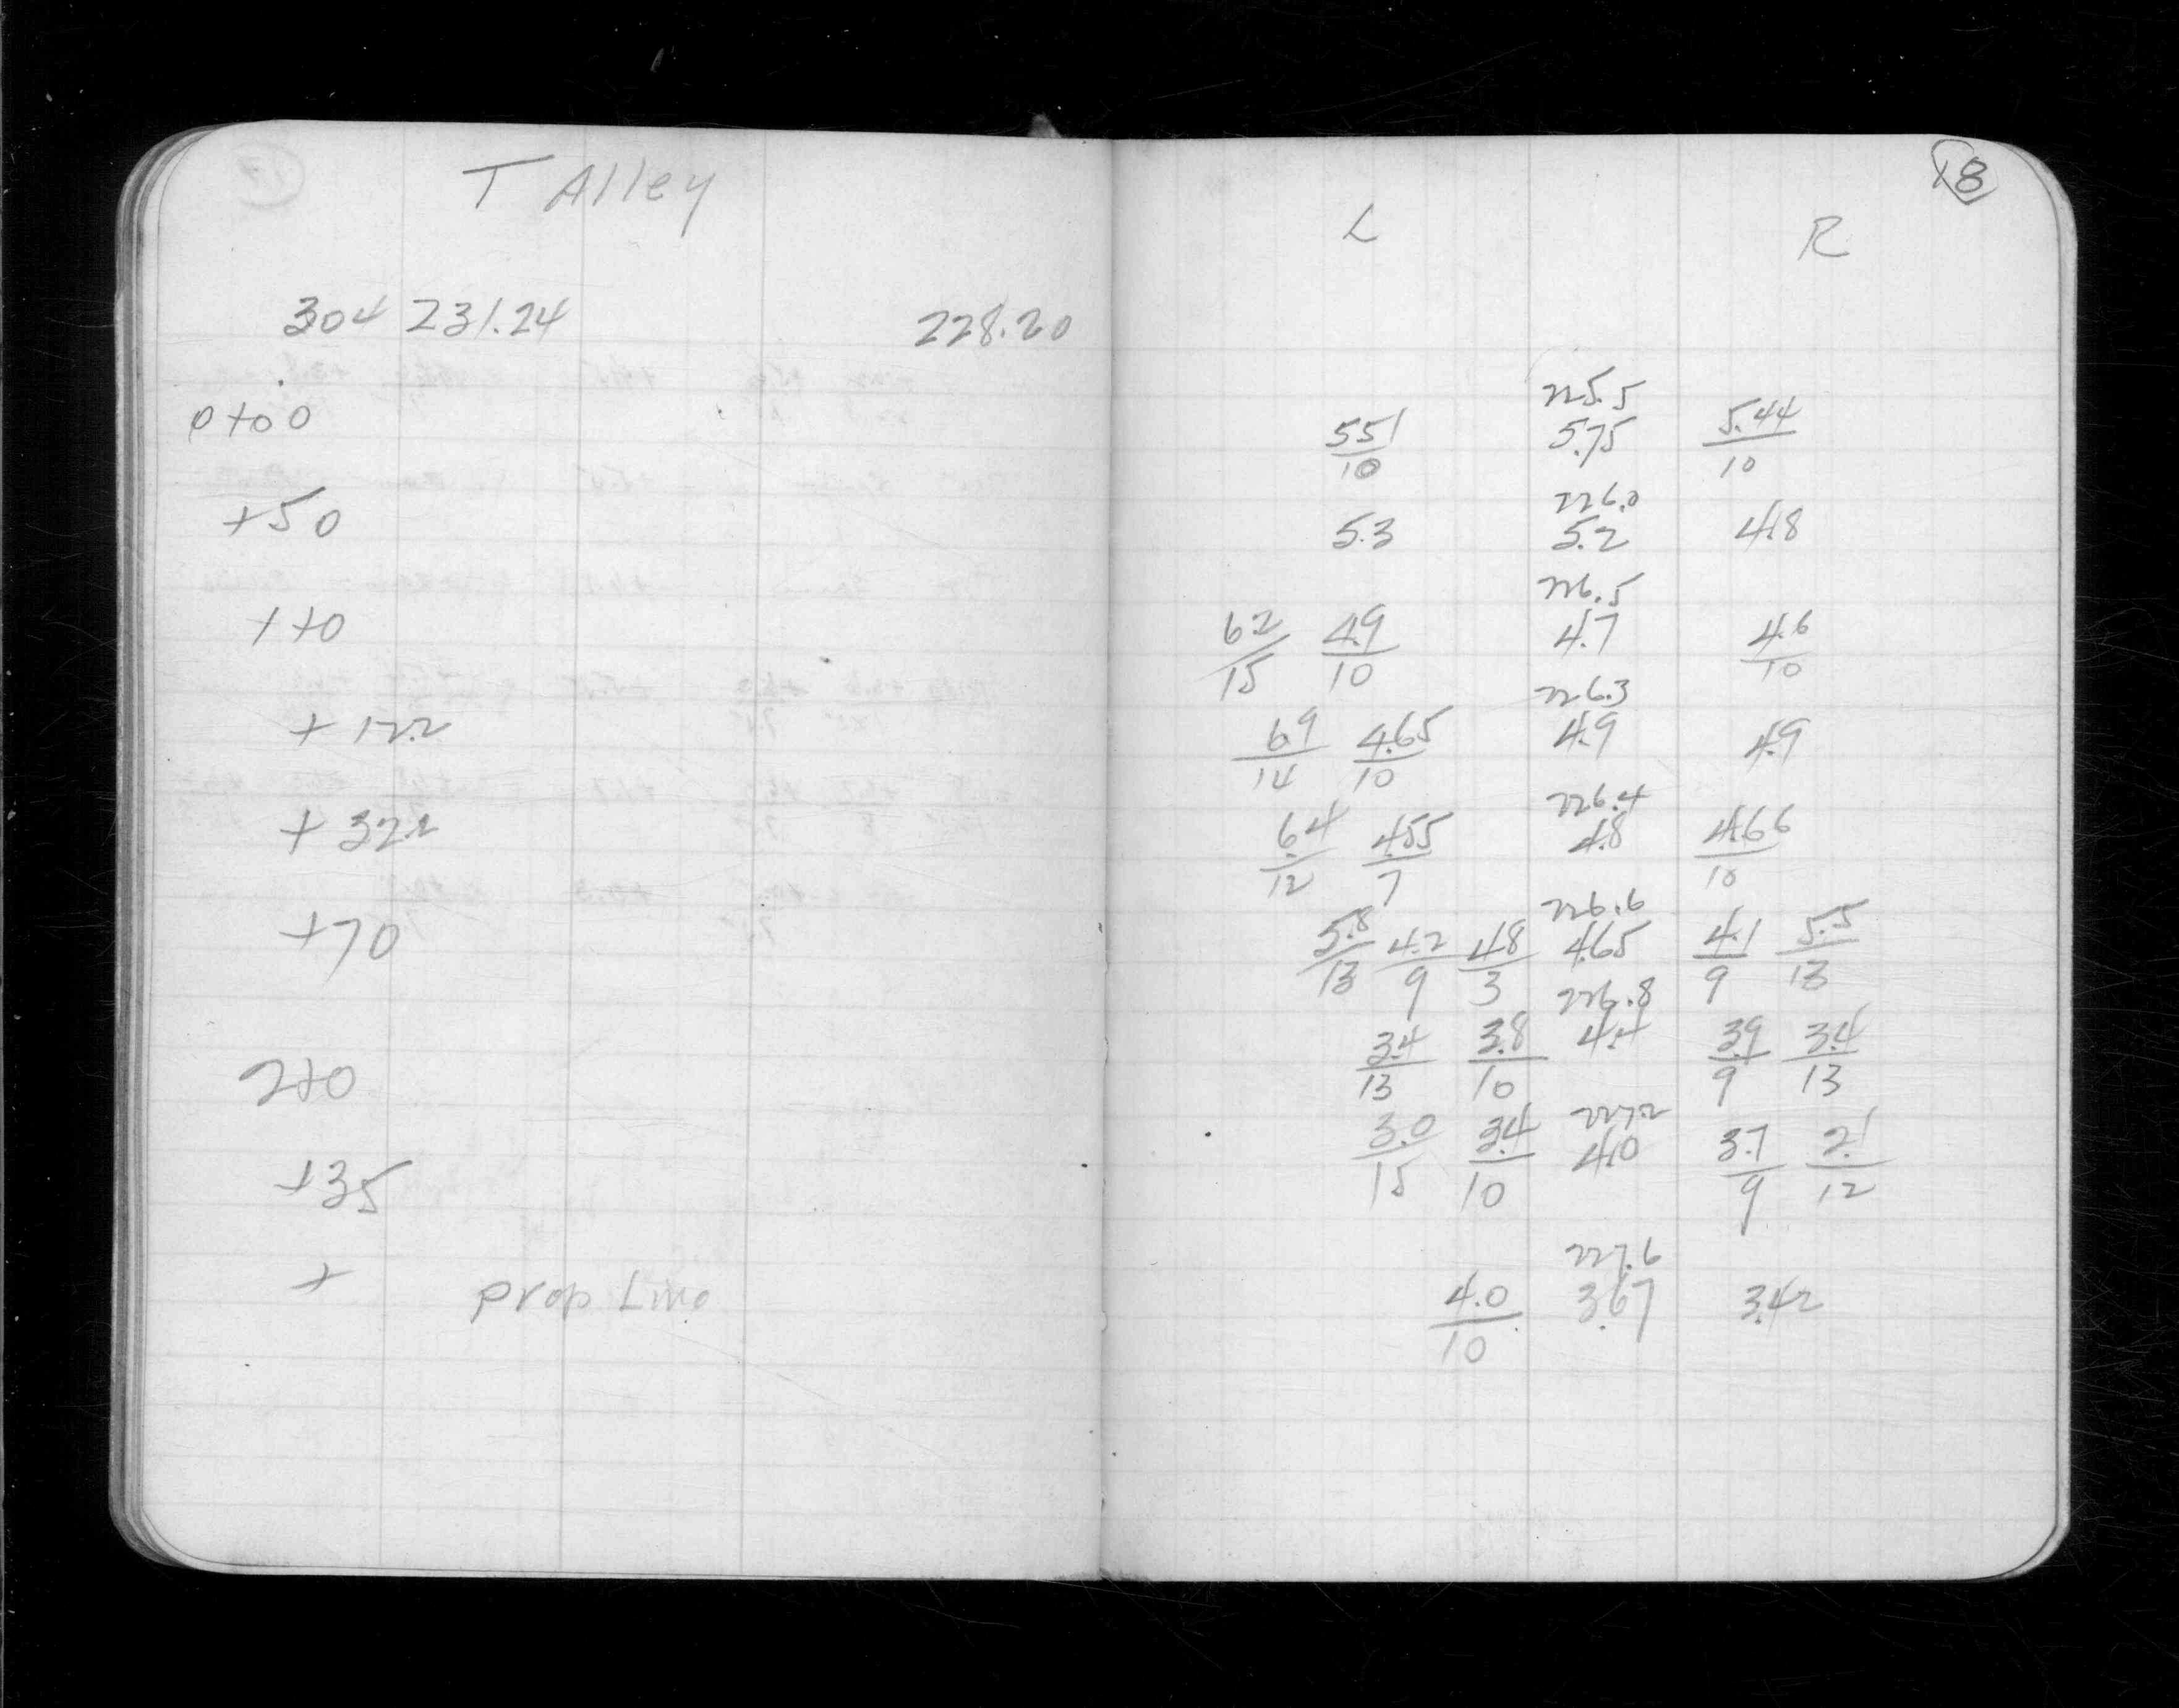 T Alley
304 231.24 228.20
0+00
+50
1+0
+122
+322
+70
2+0
+35
+ Prop Line
18
L R
225.5
5.51/10 5.75 5.44/10
226.0
5.3 5.2 4.8
226.5
6.2/15 4.9/10 4.7 4.6/10
226.3
6.9/14 4.65/10 4.9 4.9
226.4
6.4/12 4.55/7 4.8 4.66/10
226.6
5.8/13 4.2/9 4.8/3 4.65 4.1/9 5.5/13
226.8
3.4/13 3.8/10 4.4 3.9/9 3.4/13
227.2
3.0/15 3.4/10 4.0 3.7/9 2.1/12
227.6
4.0/10 3.67 3.42